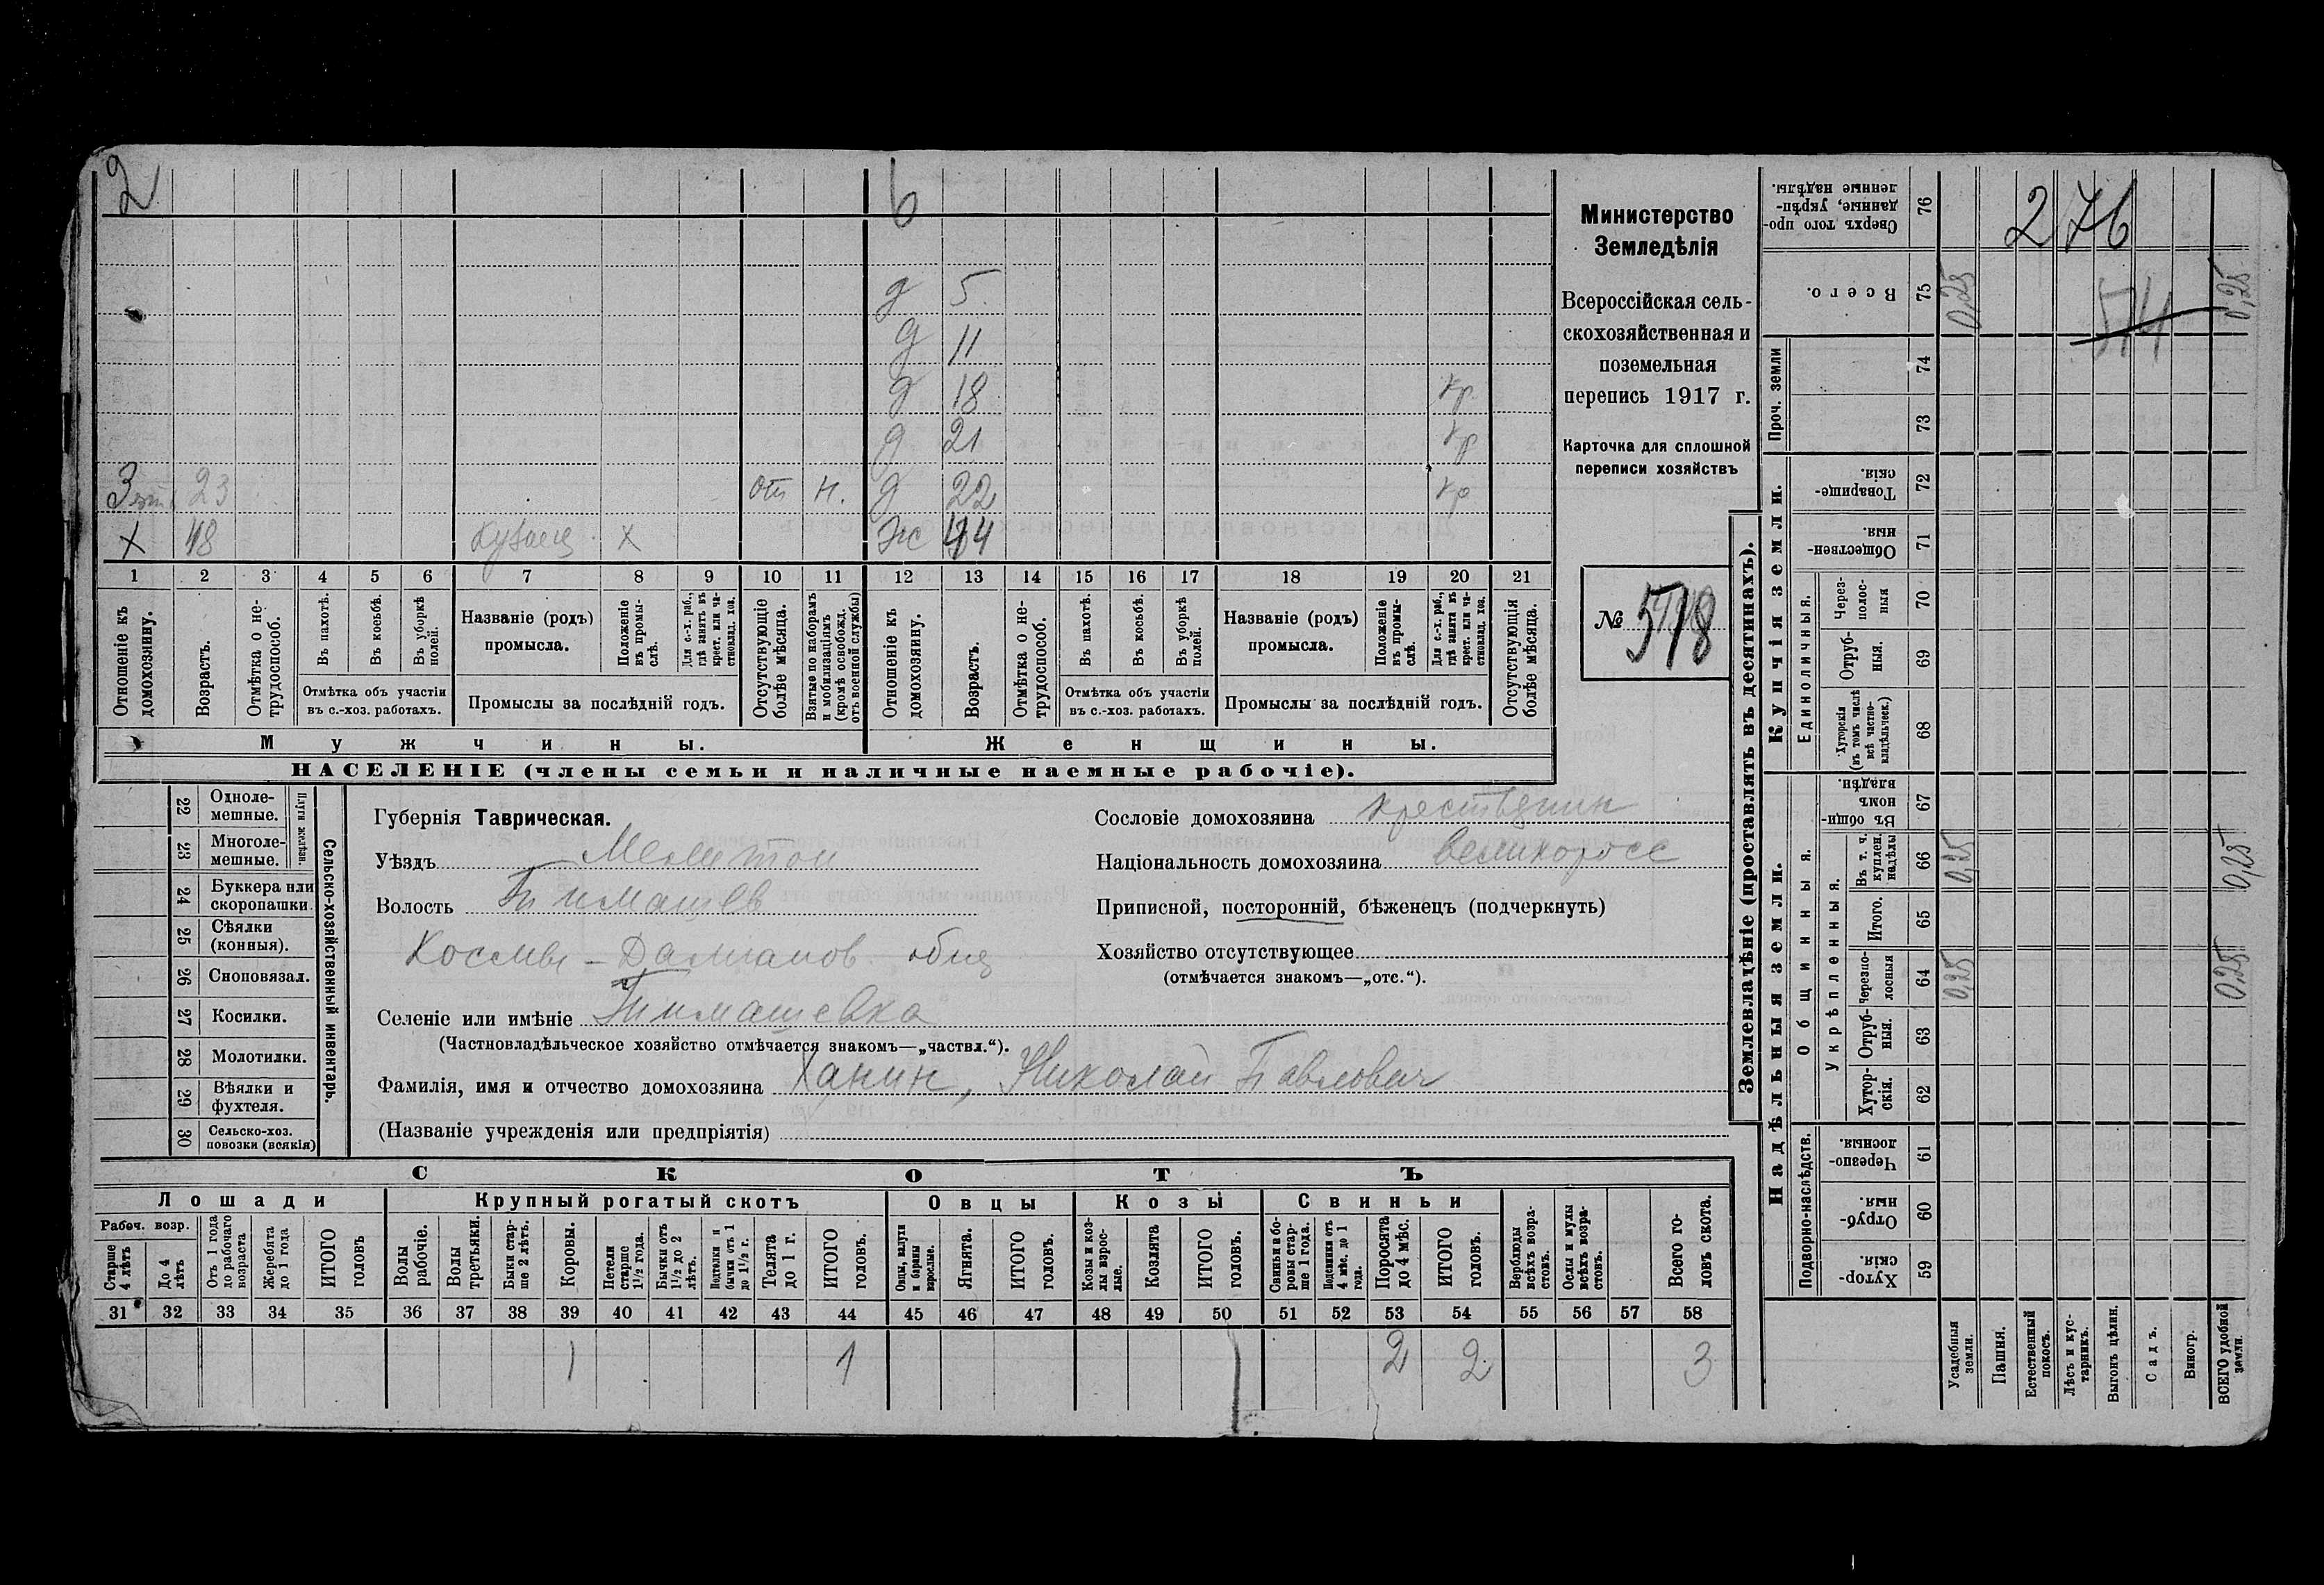 2 6
д 5
д 11
д 18 кр.
д 21 кр
Зят. 23 от н. д 22 кр
X 48 кузнец X ж 44
1 2 3 4 5 6 7 8 9 10 11 12 13 14 15 16 17 18 19 20 21
Отношеніе къ домохозяину.
Возрастъ.
Отмѣтка о не-трудоспособ.
Въ пахотѣ.
Въ косьбѣ.
Въ уборкѣ полей.
Отмѣтка объ участіи въ с.-хоз. работахъ.
Названіе (родъ) промысла.
Положеніе въ промы-слѣ.
Для с.-х. раб., гдѣ занятъ въ крест. или ча-стновлад. хоз.
Промыслы за послѣдній годъ.
Отсутствующіе болѣе мѣсяца.
Взятые по наборамъ и мобилизаціямъ (кромѣ освобожд. отъ военной службы)
Отношеніе къ домохозяину.
Возрастъ.
Отмѣтка о не-трудоспособ.
Въ пахотѣ.
Въ косьбѣ.
Въ уборкѣ полей.
Отмѣтка объ участіи въ с.-хоз. работахъ.
Названіе (родъ) промысла.
Положеніе въ промы-слѣ.
Для с.-х. раб., гдѣ занята въ крест. или ча-стновлад. хоз.
Промыслы за послѣдній годъ.
Отсутствующія болѣе мѣсяца.
Мужчины. Женщины.
НАСЕЛЕНІЕ (члены семьи и наличные наемные рабочіе).
Министерство
Земледѣлія
Всероссійская сель-
скохозяйственная и
поземельная
перепись 1917 г.
Карточка для сплошной
переписи хозяйствъ
№ 578
22 Одноле-мешные.
23 Многоле-мешные.
Плуги желѣзн.
24 Буккера или скоропашки.
25 Сѣялки (конныя).
26 Сноповязал.
27 Косилки.
28 Молотилки.
29 Вѣялки и фухтеля.
30 Сельско-хоз. повозки (всякія)
Сельско-хозяйственный инвентарь.
Губернія Таврическая.
Уѣздъ Мелитоп
Волость Тимашев
Космы-Дамианов. общ
Селеніе или имѣніе Тимашевка
(Частновладѣльческое хозяйство отмѣчается знакомъ—„частвл.“).
Фамилія, имя и отчество домохозяина Ханин, Николай Павлович
(Названіе учрежденія или предпріятія)
Сословіе домохозяина крестьянин
Національность домохозяина великоросс
Приписной, посторонній, бѣженецъ (подчеркнуть)
Хозяйство отсутствующее
(отмѣчается знакомъ—„отс.“).
СКОТЪ
Лошади Крупный рогатый скотъ Овцы Козы Свиньи
Рабоч. возр.
Старше 4 лѣтъ
До 4 лѣтъ
Отъ 1 года до рабочаго возраста
Жеребята до 1 года
ИТОГО головъ
Волы рабочіе.
Волы третьяки.
Быки стар-ше 2 лѣтъ.
Коровы.
Нетели старше 1½ года.
Бычки отъ 1½ до 2 лѣтъ.
Подтелки и бычки отъ 1 до 1½ г.
Телята до 1 г.
ИТОГО головъ.
Овцы, валухи и бараны взрослые.
Ягнята.
ИТОГО головъ.
Козы и коз-лы взрос-лые.
Козлята
ИТОГО головъ.
Свиньи и бо-ровы стар-ше 1 года.
Подсвинки отъ 4 мѣс. до 1 года.
Поросята до 4 мѣс.
ИТОГО головъ.
Верблюды всѣхъ возра-стовъ.
Ослы и мулы всѣхъ возра-стовъ.
Всего го-ловъ скота.
31 32 33 34 35 36 37 38 39 40 41 42 43 44 45 46 47 48 49 50 51 52 53 54 55 56 57 58
1 1 2 2 3
Землевладѣніе (проставлять въ десятинахъ).
Надѣльныя земли. Купчія земли. Проч. земли
Подворно-наслѣдств.
Общинныя.
Укрѣпленныя.
Единоличныя.
Хутор-скія. 59
Отруб-ныя. 60
Черезпо-лосныя. 61
Хутор-скія. 62
Отруб-ныя. 63
Черезпо-лосныя 64 0,25 0,25
Итого. 65
Въ т. ч. куплен. надѣлы 66 0,25 0,25
Въ общин-номъ владѣн. 67
Хуторскія (въ томъ числѣ всѣ частно-владѣльческ.) 68
Отруб-ныя. 69
Через-полос-ныя 70
Обществен-ныя. 71
Товарище-скія. 72
73
74
Всего. 75 0,25 574 0,25
Сверхъ того про-данные, укрѣп-ленные надѣлы. 76 276
Усадебныя земли.
Пашня.
Естественный покосъ.
Лѣсъ и кус-тарникъ.
Выгонъ цѣлин.
Садъ.
Виногр.
ВСЕГО удобной земли.